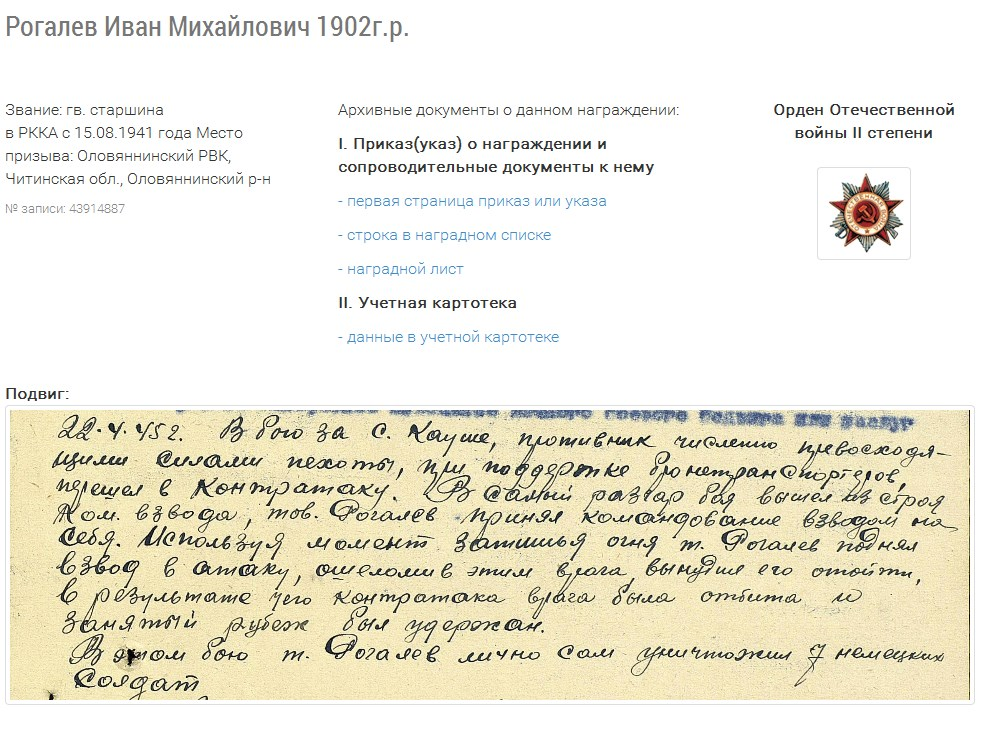 Рогалев Иван Михайлович 1902г.р.
Звание: гв. старшина
в РККА с 15.08.1941 года Место
призыва: Оловяннинский РВК,
Читинская обл., Оловяннинский р-н
№ записи: 43914887
Архивные документы о данном награждении:
I. Приказ(указ) о награждении и
сопроводительные документы к нему
- первая страница приказ или указа
- строка в наградном списке
- наградной лист
II. Учетная картотека
- данные в учетной картотеке
Орден Отечественной
войны II степени
ОТЕЧЕСТВЕННАЯ ВОЙНА
Подвиг:
22.4.45г. В бою за с. Кауше, противник численно превосходя-
щими силами пехоты, при поддержке бронетранспортеров,
перешел в контратаку. В самый разгар боя вышел из строя
ком. взвода, тов. Рогалев принял командование взводом на
себя. Используя момент затишья огня т. Рогалев поднял
взвод в атаку, ошеломив этим врага, вынудил его отойти,
в результате чего контратака врага была отбита и
занятый рубеж был удержан.
В этом бою т. Рогалев лично сам уничтожил 7 немецких
солдат